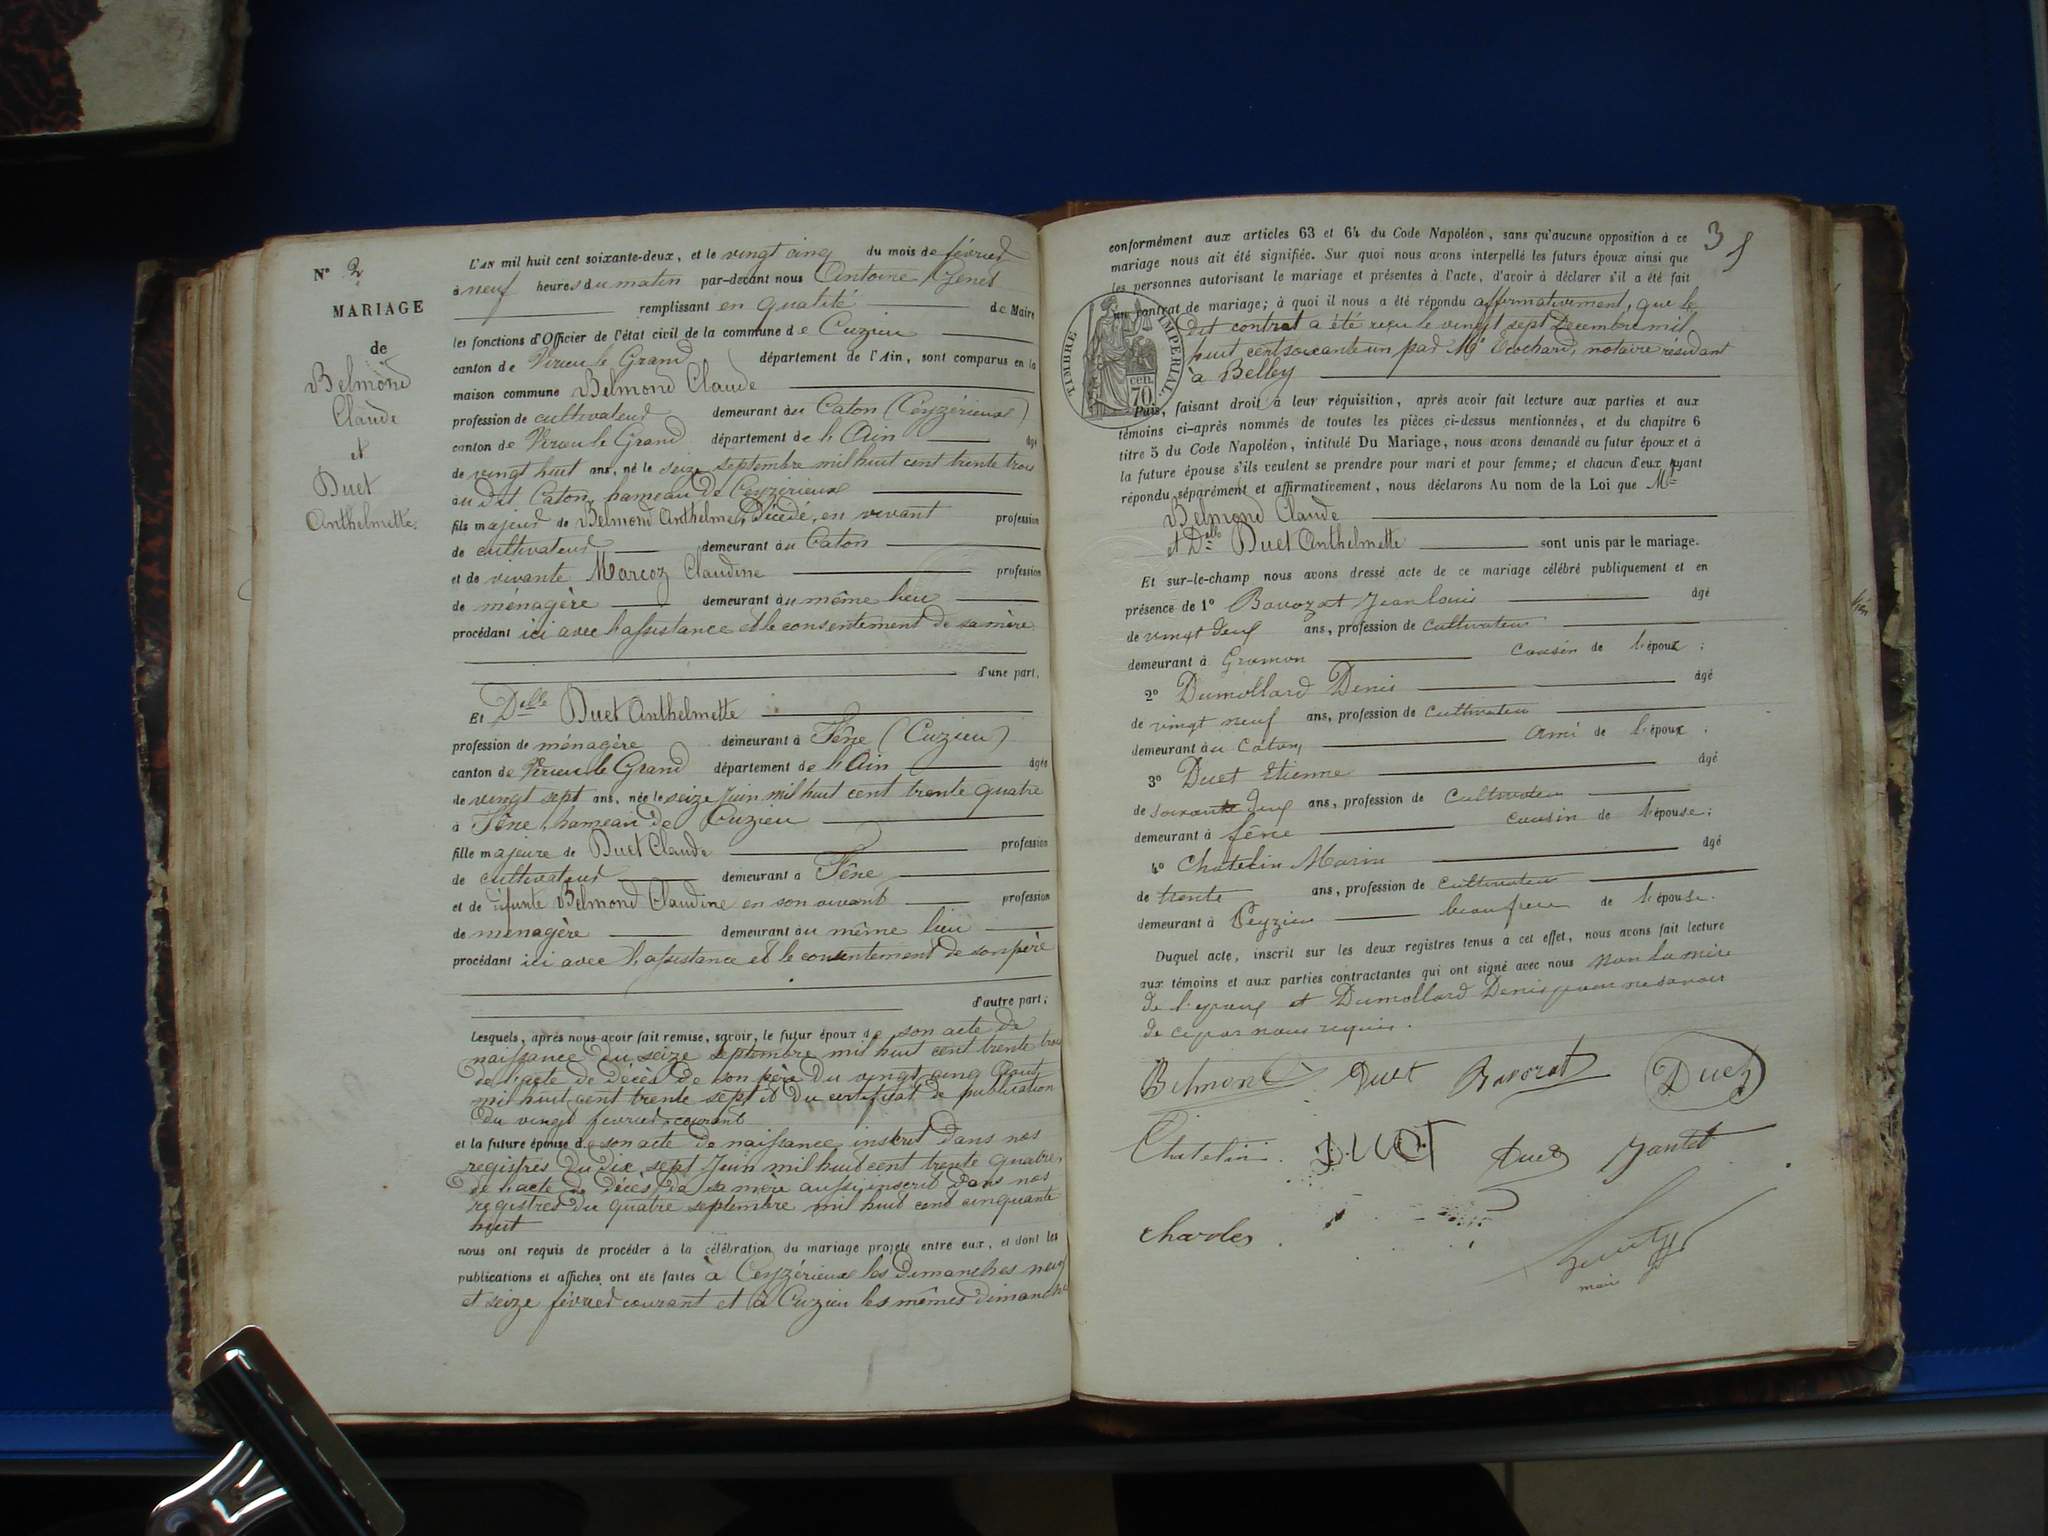 N° 2
MARIAGE
de
Belmond
Claude
et
Duet
Anthelmette.
L'AN mil huit cent soixante-deux, et le vingt cinq du mois de février
à neuf heures du matin par-devant nous Antoine
remplissant en qualité de Maire
les fonctions d'Officier de l'état civil de la commune de Cuzieu
canton de Virieu le Grand département de l'Ain, sont comparus en la
maison commune Belmond Claude
profession de cultivateur demeurant au Caton (Ceyzérieux)
canton de Virieu le Grand département de l'Ain âgé
de vingt huit ans, né le seize septembre mil huit cent trente trois
au dit Caton, hameau de Ceyzérieux
fils majeur de Belmond Anthelme, Décédé, en vivant profession
de cultivateur demeurant au Caton
et de vivante Marcoz Claudine profession
de ménagère demeurant au même lieu
procédant ici avec l'assistance et le consentement de sa mère
d'une part,
Et Delle Duet Anthelmette
profession de ménagère demeurant à Fêne (Cuzieu)
canton de Virieu le Grand département de l'Ain âgée
de vingt sept ans, née le seize Juin mil huit cent trente quatre
à Fêne, hameau de Cuzieu
fille majeure de Duet Claude profession
de cultivateur demeurant à Fêne
et de défunte Belmond Claudine en son vivant profession
de ménagère demeurant au même lieu
procédant ici avec l'assistance et le consentement de son père
d'autre part;
Lesquels, après nous avoir fait remise, savoir, le futur époux de son acte de
naissance du seize septembre mil huit cent trente trois
de l'acte de décès de son père du vingt cinq Aout
mil huit cent trente sept et du certificat de publication
du vingt fevrier courant
et la future épouse de son acte de naissance inscrit dans nos
registres du dix sept Juin mil huit cent trente quatre,
de l'acte de décès de sa mère aussi inscrit dans nos
registres du quatre septembre mil huit cent cinquante
huit
nous ont requis de procéder à la célébration du mariage projeté entre eux, et dont les
publications et affiches ont été faites à Ceyzérieux les Dimanches neuf
et seize février courant et à Cuzieu les mêmes dimanches
3
conformément aux articles 63 et 64 du Code Napoléon, sans qu'aucune opposition à ce
mariage nous ait été signifiée. Sur quoi nous avons interpellé les futurs époux ainsi que
les personnes autorisant le mariage et présentes à l'acte, d'avoir à déclarer s'il a été fait
un contrat de mariage; à quoi il nous a été répondu affirmativement, que le
dit contrat a été reçu le vingt sept Decembre mil
huit cent soixante un par Me notaire résidant
à Belley
TIMBRE IMPERIAL
70 cen.
Puis, faisant droit à leur réquisition, après avoir fait lecture aux parties et aux
témoins ci-après nommés de toutes les pièces ci-dessus mentionnées, et du chapitre 6
titre 5 du Code Napoléon, intitulé Du Mariage, nous avons demandé au futur époux et à
la future épouse s'ils veulent se prendre pour mari et pour femme; et chacun d'eux ayant
répondu séparément et affirmativement, nous déclarons Au nom de la Loi que Mr
Belmond Claude
et Delle Duet Anthelmette sont unis par le mariage.
Et sur-le-champ nous avons dressé acte de ce mariage célébré publiquement et en
présence de 1° Bavozat Jean louis âgé
de vingt neuf ans, profession de cultivateur
demeurant à Gramon cousin de l'époux;
2° Dumollard Denis âgé
de vingt neuf ans, profession de cultivateur
demeurant au Caton, ami de l'époux.
3° Duet Etienne âgé
de soixante deux ans, profession de cultivateur
demeurant à fêne cousin de l'épouse;
4° Chatelin Marin âgé
de trente ans, profession de cultivateur
demeurant à Peyzieu beau frere de l'épouse.
Duquel acte, inscrit sur les deux registres tenus à cet effet, nous avons fait lecture
aux témoins et aux parties contractantes qui ont signé avec nous non la mère
de l'époux et Dumollard Denis pour ne savoir
de ce par nous requis.
Belmond Duet Bavozat Duet
Chatelin. DUET Duet Jantet
Charles
maire